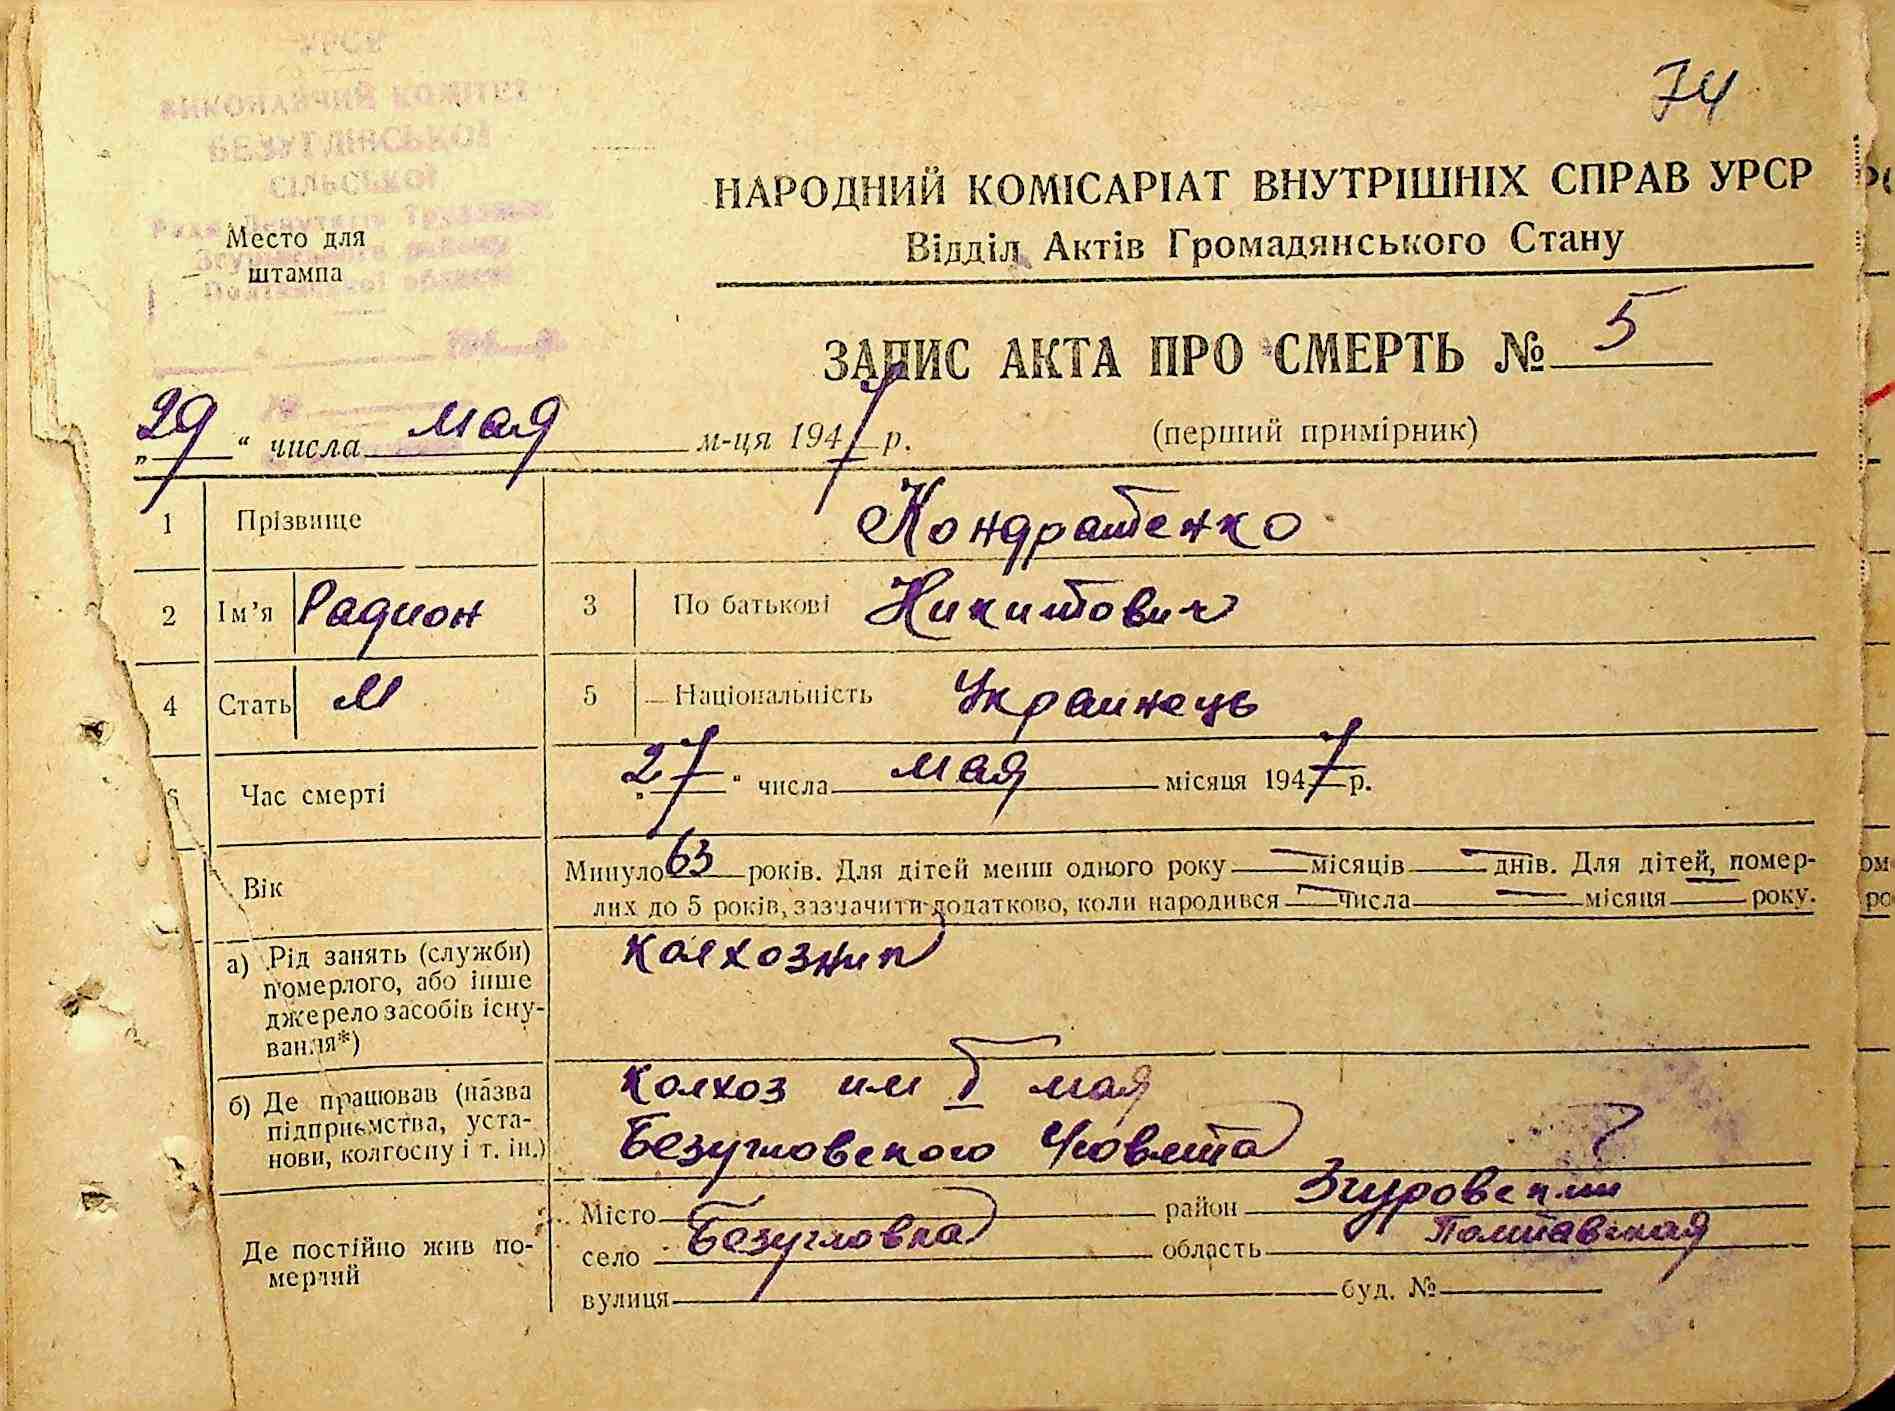 УРСР
ВИКОНАВЧИЙ КОМІТЕТ
БЕЗУГЛІВСЬКОЇ
СІЛЬСЬКОЇ
Ради Депутатів Трудящих
Згурівського району
Полтавської області
74
Место для
штампа
НАРОДНИЙ КОМІСАРІАТ ВНУТРІШНІХ СПРАВ УРСР
Відділ Актів Громадянського Стану
ЗАПИС АКТА ПРО СМЕРТЬ № 5
„29“ числа мая м-ця 1947 р.
(перший примірник)
1 Прізвище Кондратенко
2 Ім'я Радион 3 По батькові Никитович
4 Стать М 5 Національність Украинець
6 Час смерті „27“ числа мая місяця 1947 р.
Вік
Минуло 63 років. Для дітей менш одного року — місяців — днів. Для дітей, помер-
лих до 5 років, зазначити додатково, коли народився — числа — місяця — року.
а) Рід занять (служби)
померлого, або інше
джерело засобів існу-
вання*)
колхозник
б) Де працював (назва
підприємства, уста-
нови, колгоспу і т. ін.)
колхоз им I мая
Безугловского
Де постійно жив по-
мерлий
Місто район Згуровский
село Безугловка область Полтавская
вулиця буд. №